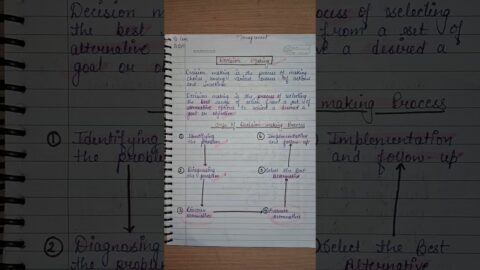 Management
Decision Making
Decision making is the process of making
choices among various courses of actions
and
Decision making is the process of selecting
the best course of action from a set of
alternative options to reach a desired a
goal or objective.
Steps of Decision making Process
① Identifying
the problem
② Diagnosing
the problem
③ Discover
Alternatives
④ Evaluate
Alternatives
⑤ Select the Best
Alternative
⑥ Implementation
and follow-up
Decision mak
the best
alternative
goal or o
① Identifying
the proble
② Diagnosing
the problem
ocess of selecting
from a set of
a desired a
making Process
Implementation
and follow-up
Select the Best
Alternative